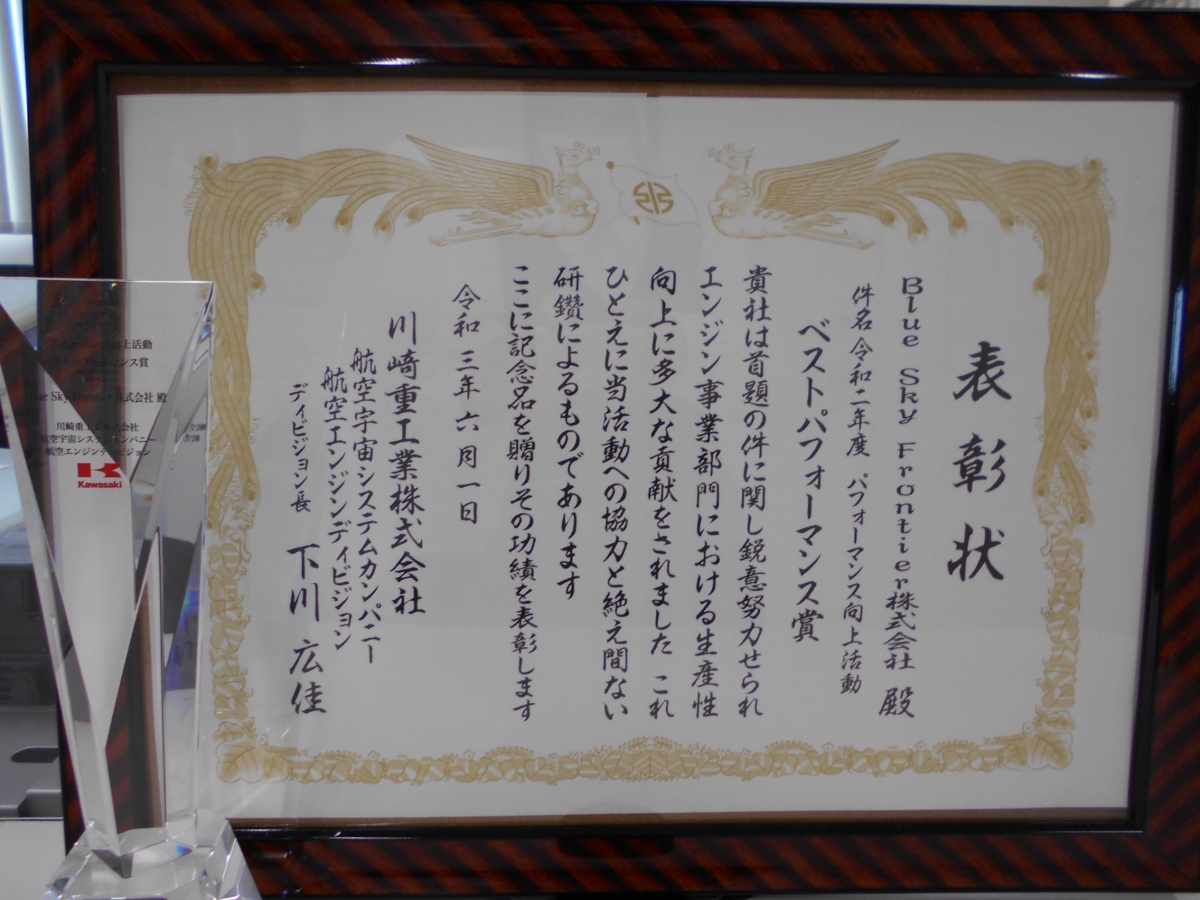 表彰状
Blue Sky Frontier株式会社 殿
件名 令和二年度 パフォーマンス向上活動
ベストパフォーマンス賞
貴社は首題の件に関し鋭意努力せられ
エンジン事業部門における生産性
向上に多大な貢献をされました これ
ひとえに当活動への協力と絶え間ない
研鑽によるものであります
ここに記念品を贈りその功績を表彰します
令和三年六月一日
川崎重工業株式会社
航空宇宙システムカンパニー
航空エンジンディビジョン
ディビジョン長 下川広佳
向上活動
マンス賞
Blue Sky Frontier 株式会社 殿
川崎重工業株式会社
航空宇宙システムカンパニー
航空エンジンディビジョン
Kawasaki